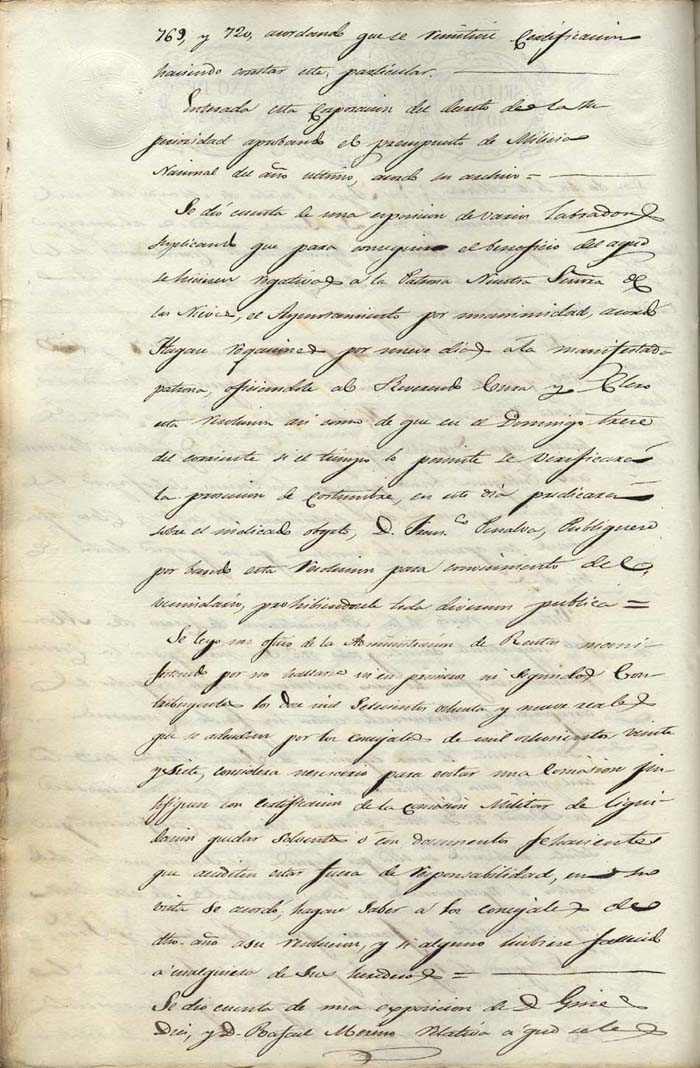 769, y 720, acordando que se remitiese Certificacion
haciendo constar este particular.
Enterada esta Corporacion del decreto de la Su
perioridad aprobando el presupuesto de Milicia
Nacional del año ultimo, acordó su archivo=
Se dió cuenta de una exposicion de varios Labradores
suplicando que para conseguir el beneficio del agua
se hiciesen rogativas a la Patrona Nuestra Señora de
las Nieves, el Ayuntamiento por unanimidad, acordó
Hagan rogaciones por nueve dias á la manifestada
patrona, oficiandole al Reverendo Cura y Clero
esta resolucion asi como de que en el Domingo trece
del corriente si el tiempo lo permite se verificará
la procesion de costumbre, en este dia predicara
sobre el indicado objeto, D. Franco Penalva, Publiquese
por bando esta resolucion para conocimiento del
vecindario, prohibiendosele toda diversion publica=
Se leyo un oficio de la Administracion de Rentas mani
festando por no hallarse ni en primeros ni segundos Con
tribuyentes los doce mil seiscientos ochenta y nueve reales
que se adeudan por los concejales de mil ochocientos veinte
y siete, considera necesario para evitar una Comision jus
tifiquen con certificacion de la Comision Militar de liqui
dacion quedar solventes ó con documentos fehacientes
que acrediten estar fuera de responsabilidad, en su
vista se acordó, hagase saber á los concejales de
dho. año a su resolucion, y si alguno hubiese fallecido
a cualquiera de sus herederos=
Se dio cuenta de una exposicion de D. Gines
Diez, y D. Rafael Moreno relativa a que se le